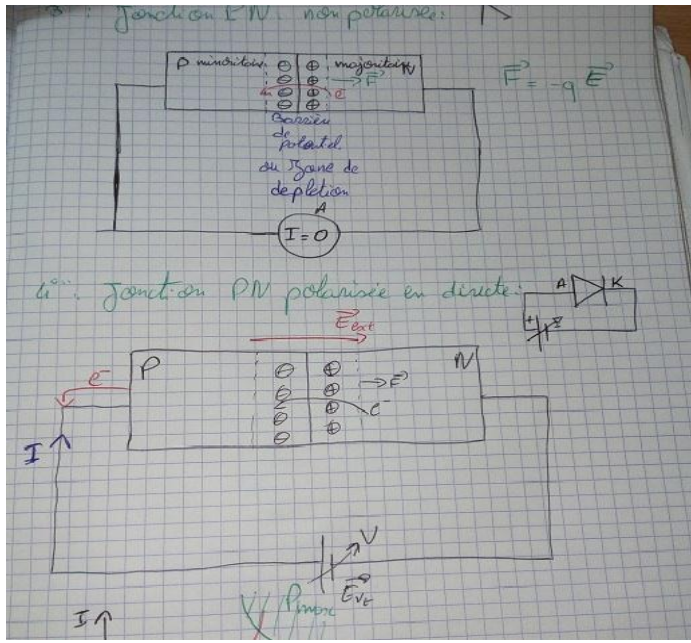 3°: Jonction PN: non polarisée:
P minoritair. ⊖ ⊕ majoritair N
⊖ ⊕ → F
⊖ ⊕ e⁻
⊖ ⊕
F = -q E
Barrièr
de
potentiel
ou Zone de
depletion
A
I=0
4°: Jonction PN polarisée en directe:
A K
+
E ext
P N
e⁻ ⊖ ⊕
⊖ ⊕ → F
⊖ ⊕ e⁻
⊖ ⊕
I
V
I